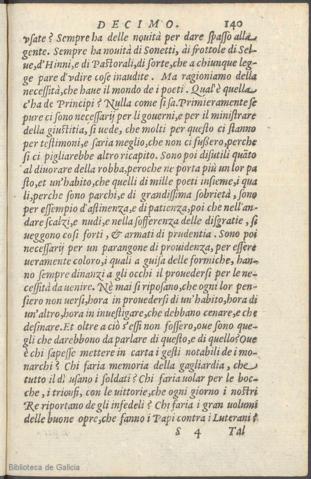 DECIMO. 140
vsate? Sempre ha delle nouità per dare spasso alla
gente. Sempre ha nouità di Sonetti, di frottole di Sel-
ue, d'Hinni, e di Pastorali, di sorte, che a chiunque leg-
ge pare d'vdire cose inaudite. Ma ragioniamo della
necessità, che haue il mondo de i poeti. Qual'è quella
c'ha de Principi? Nulla come si sa. Primieramente se
pure ci sono necessarij per li gouerni, e per il ministrare
della giustitia, si uede, che molti per questo ci stanno
per testimoni, e saria meglio, che non ci fußero, perche
si ci pigliarebbe altro ricapito. Sono poi disutili quāto
al diuorare della robba, peroche ne porta più un lor pa
sto, et un'habito, che quelli di mille poeti insieme, i qua
li, perche sono parchi, e di grandissima sobrietà, sono
per essempio d'astinenza, e di patienza, poi che nell'an-
dare scalzi, e nudi, e nella sofferenza delle disgratie, si
ueggono così forti, & armati di prudentia. Sono poi
necessarij per un parangone di prouidenza, per essere
ueramente coloro, i quali a guisa delle formiche, han-
no sempre dinanzi a gli occhi il prouedersi per le ne-
cessità da uenire. Nè mai si riposano, che ogni lor pen-
siero non uersi, hora in prouedersi di un'habito, hora di
un'altro, hora in inuestigare, che debbano cenare, e che
desinare. Et oltre a ciò s'essi non fossero, oue sono que-
gli che darebbono da parlare di questo, e di quello? Oue
è chi sapesse mettere in carta i gesti notabili de i mo-
narchi? Chi faria memoria della gagliardia, che
tutto il dì usano i soldati? Chi faria uolar per le boc-
che, i trionfi, con le uittorie, che ogni giorno i nostri
Re riportano de gli infedeli? Chi faria i gran uolumi
delle buone opre, che fanno i Papi contra i Luterani?
S 4 Tal
Biblioteca de Galicia